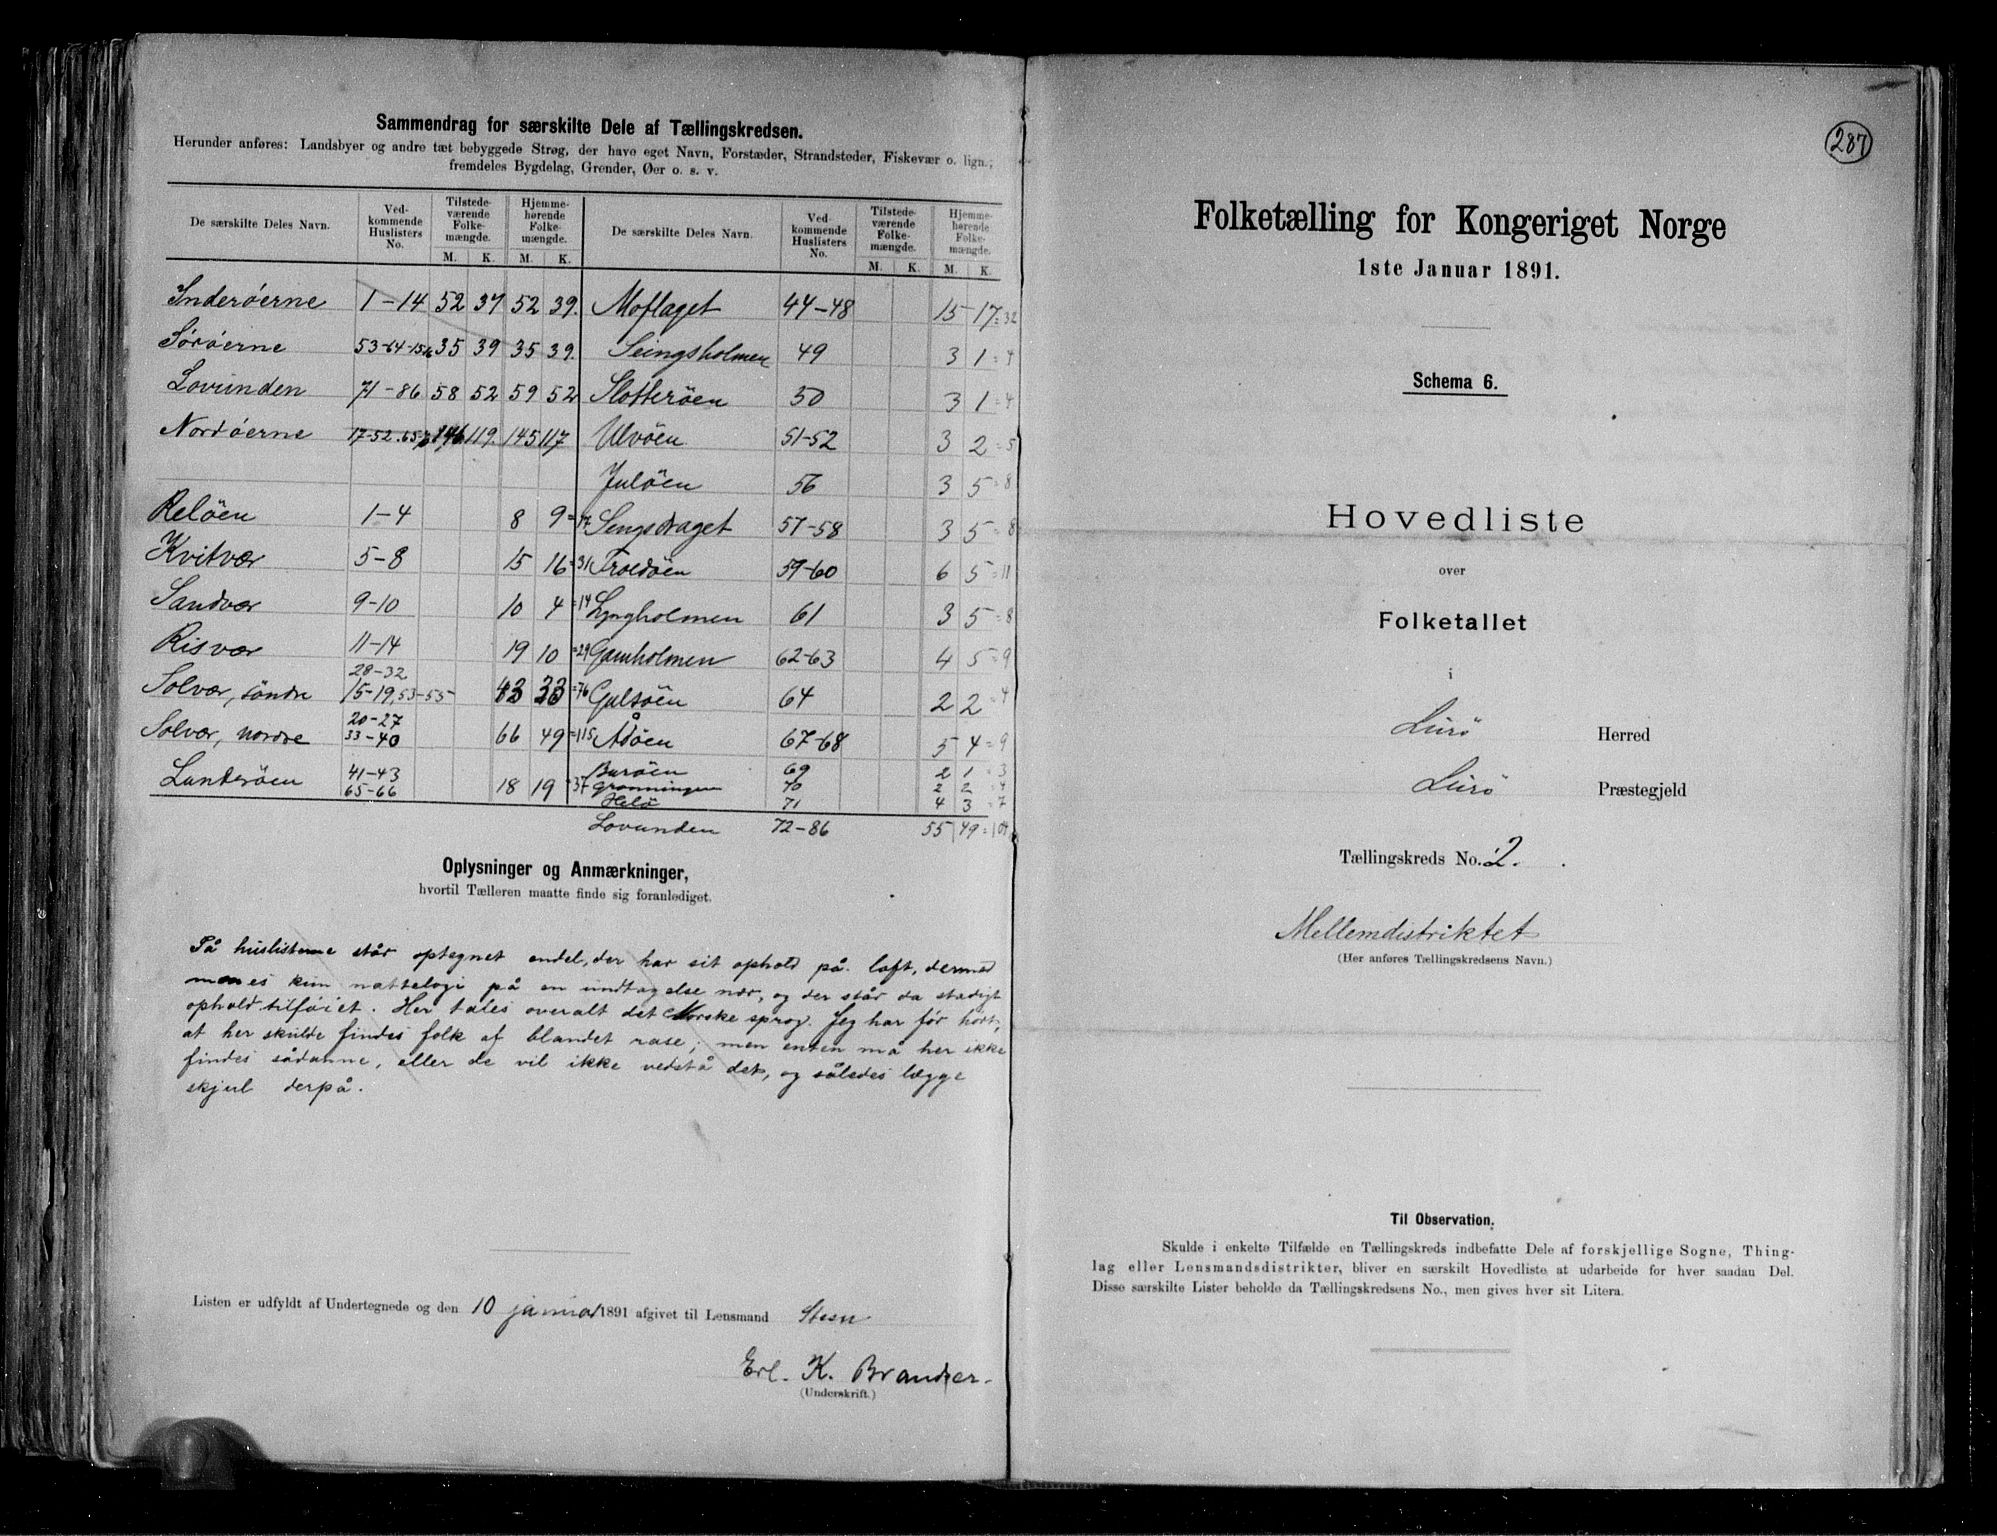 Sammendrag for særskilte Dele af Tællingskredsen.
Herunder anføres: Landsbyer og andre tæt bebyggede Strøg, der have eget Navn, Forstæder, Strandsteder, Fiskevær o. lign.;
fremdeles Bygdelag, Grender, Øer o. s. v.
De særskilte Deles Navn. Ved-kommende Huslisters No. Tilstede-værende Folke-mængde. Hjemme-hørende Folke-mængde. De særskilte Deles Navn. Ved-kommende Huslisters No. Tilstede-værende Folke-mængde. Hjemme-hørende Folke-mængde.
M. K. M. K. M. K. M. K.
Inderöerne 1-14 52 37 52 39. Moflaget 44-48 15 17=32
Söröerne 53-64-15,16 35 39 35 39. Seingsholmen 49 3 1=4
Lovunden 71-86 58 52 59 52 Slotteröen 50 3 1=4
Nordöerne 17-52.65-70 146 119. 145 117 Ulvöen 51-52 3 2=5
Julöen 56 3 5=8
Relöen 1-4 8 9=17 Sengsdraget 57-58 3 5=8
Kvitvær 5-8 15 16=31 Troldöen 59-60 6 5=11
Sandvær 9-10 10 4=14 Lyngholmen 61 3 5=8
Risvær 11-14 19 10=29 Gamholmen 62-63 4 5=9
28-32
Solvær, söndre 15-19,53-55 43 33=76 Galsöen 64 2 2=4
20-27
Solvær, nordre 33-40 66 49=115 Ådöen 67-68 5 4=9
41-43 Buröen 69 2 1=3
Landeröen 65-66 18 19=37 Grönningen 70 2 2=4
Helö 71 4 3=7
Lovunden 72-86 55 49=104
Oplysninger og Anmærkninger,
hvortil Tælleren maatte finde sig foranlediget.
På huslisterne står optegnet endel, der har sit ophold på loft, dermed
menes kun natteloge på en undtagelse nær, og der står da stadigt
ophold tilföiet. Her tales overalt det Norske sprog. Jeg har før hört,
at her skulde findes folk af blandet rase; men enten må her ikke
findes sådanne, eller de vil ikke vedstå det, og således lægge
skjul derpå.
Listen er udfyldt af Undertegnede og den 10 januar 1891 afgivet til Lensmand Steen
Erl. K. Brandser.
(Underskrift.)
287
Folketælling for Kongeriget Norge
1ste Januar 1891.
Schema 6.
Hovedliste
over
Folketallet
i
Lurö Herred
Lurö Præstegjeld
Tællingskreds No. 2.
Mellemdistriktet
(Her anføres Tællingskredsens Navn.)
Til Observation.
Skulde i enkelte Tilfælde en Tællingskreds indbefatte Dele af forskjellige Sogne, Thing-
lag eller Lensmandsdistrikter, bliver en særskilt Hovedliste at udarbeide for hver saadan Del.
Disse særskilte Lister beholde da Tællingskredsens No., men gives hver sit Litera.